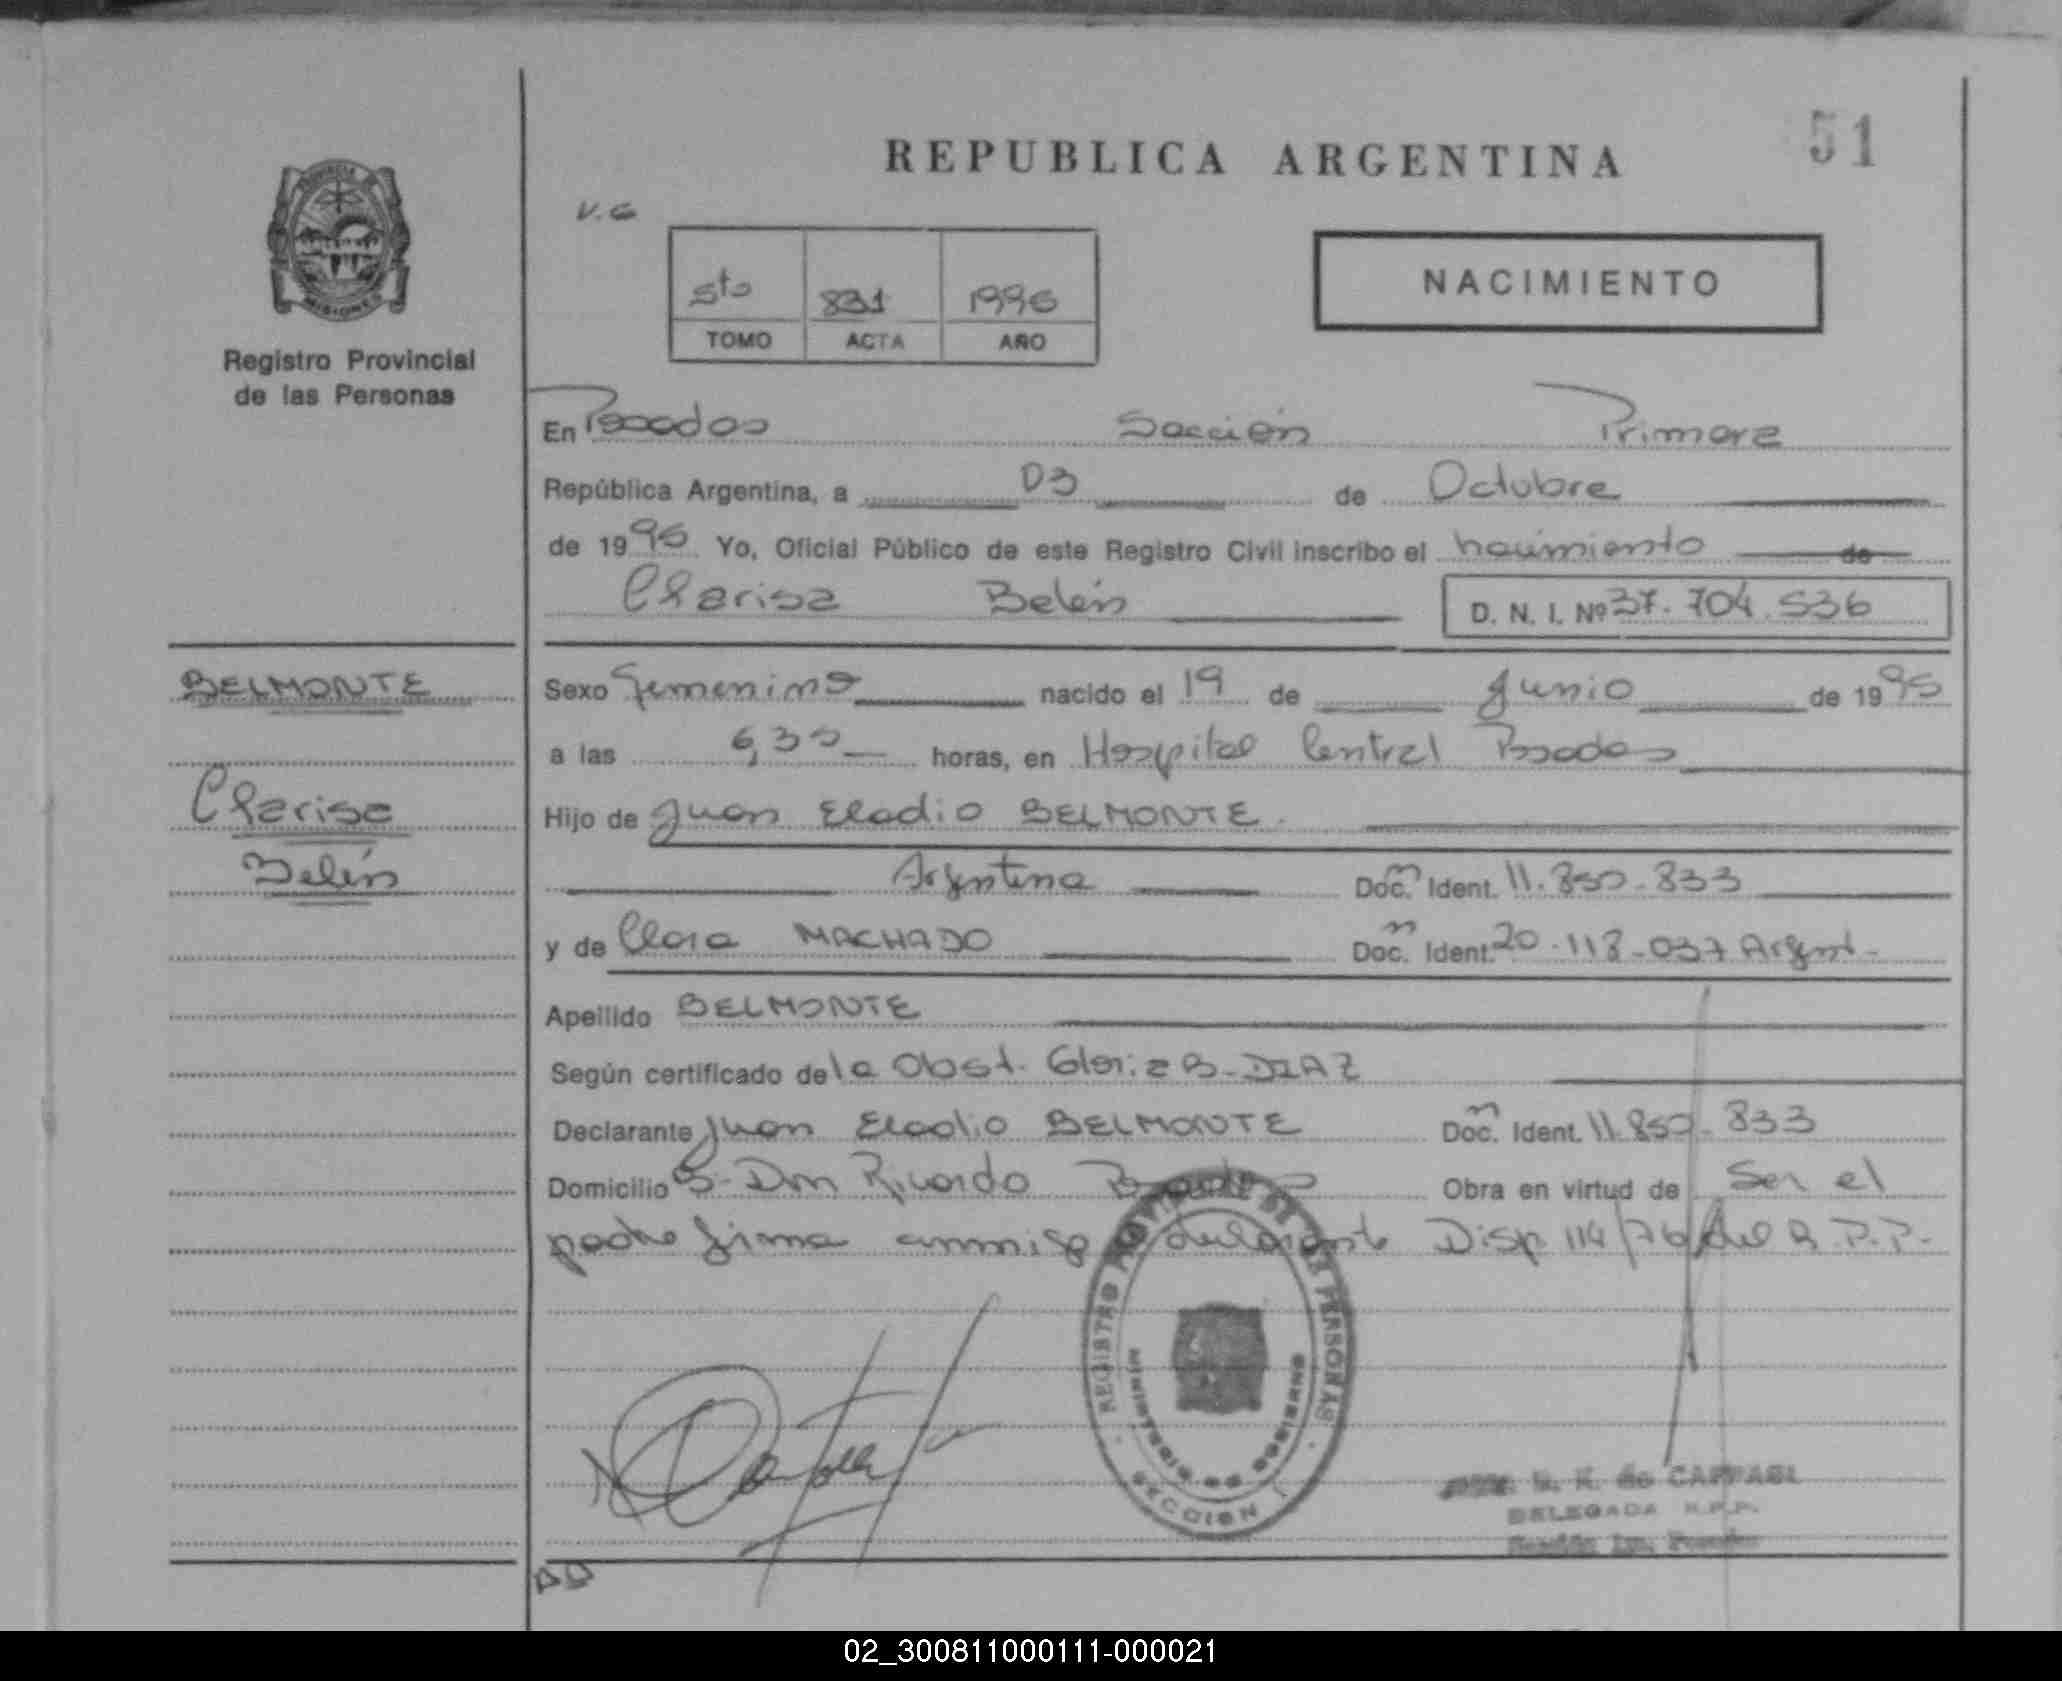 REPUBLICA ARGENTINA
51
PROVINCIA DE
MISIONES
Registro Provincial
de las Personas
V.G
5to 831 1996
TOMO ACTA AÑO
NACIMIENTO
En Posadas Sección Primera
República Argentina, a 03 de Octubre
de 1996 Yo, Oficial Público de este Registro Civil inscribo el nacimiento de
Clarisa Belén D. N. I. Nº 37.704.536
BELMONTE
Sexo Femenino nacido el 19 de Junio de 1995
a las 6,30 horas, en Hospital Central Posadas
Clarisa
Hijo de Juan Eladio BELMONTE.
Belén
Argentina Doc. Ident. 11.850.833
y de Clara MACHADO Doc. Ident. 20.118.037 Argent.
Apellido BELMONTE
Según certificado de la Obst. Gloria B. DIAZ
Declarante Juan Eladio BELMONTE Doc. Ident. 11.850.833
Domicilio B. Don Ricardo Posadas Obra en virtud de Ser el
padre firma conmigo declarante Disp 114/76 del R.P.P.
REGISTRO PROVINCIAL DE LAS PERSONAS
MINISTERIO DE GOBIERNO
SECCION 1
de CAPPASI
DELEGADA R.P.P.
Sección 1ra. Posadas
02_300811000111-000021